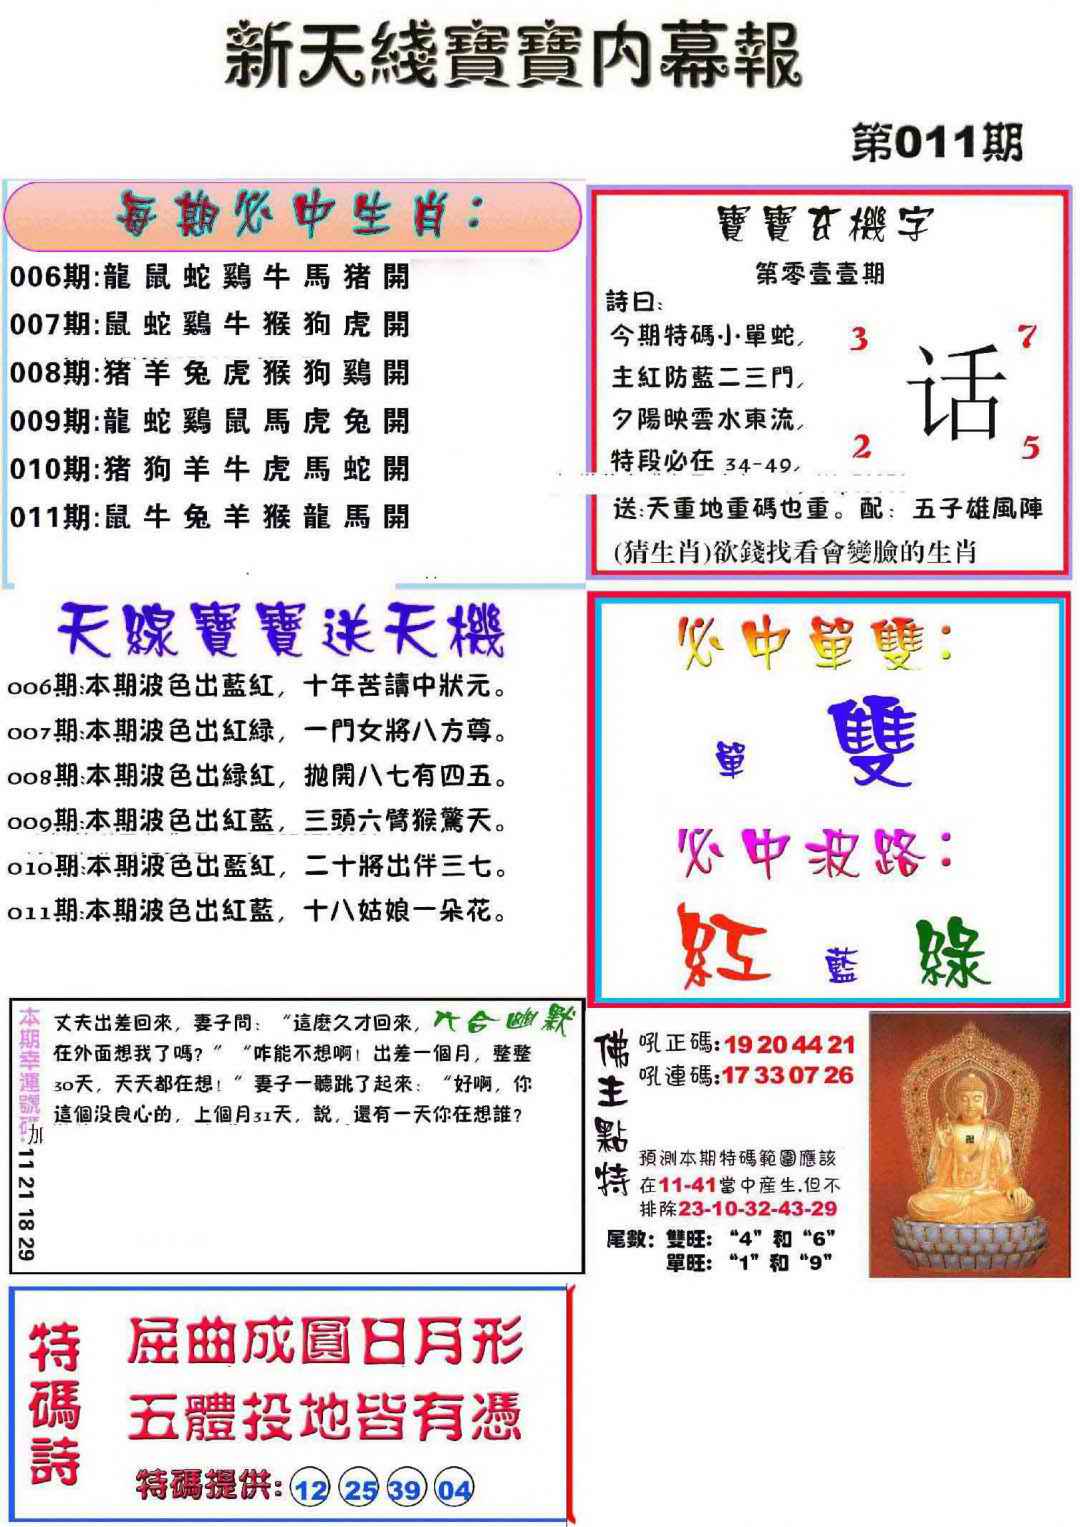 新天綫寶寶内幕報
第011期
每期必中生肖：
006期:龍鼠蛇鷄牛馬猪開
007期:鼠蛇鷄牛猴狗虎開
008期:猪羊兔虎猴狗鷄開
009期:龍蛇鷄鼠馬虎兔開
010期:猪狗羊牛虎馬蛇開
011期:鼠牛兔羊猴龍馬開
寶寶玄機字
第零壹壹期
詩曰:
今期特碼小單蛇,
主紅防藍二三門,
夕陽映雲水東流,
特段必在 34-49,
3
7
话
2
5
送:天重地重碼也重。配：五子雄風陣
(猜生肖)欲錢找看會變臉的生肖
天線寶寶送天機
006期:本期波色出藍紅，十年苦讀中狀元。
007期:本期波色出紅緑，一門女將八方尊。
008期:本期波色出緑紅，抛開八七有四五。
009期:本期波色出紅藍，三頭六臂猴驚天。
010期:本期波色出藍紅，二十將出伴三七。
011期:本期波色出紅藍，十八姑娘一朵花。
必中單雙：
單 雙
必中波路：
紅 藍 綠
本期幸運號碼:
加
11 21 18 29
六合幽默
丈夫出差回來，妻子問：“這麽久才回來，
在外面想我了嗎？”“咋能不想啊！出差一個月，整整
30天，天天都在想！”妻子一聽跳了起來：“好啊，你
這個没良心的，上個月31天，説，還有一天你在想誰？
佛主點特
吼正碼:19 20 44 21
吼連碼:17 33 07 26
預測本期特碼範圍應該
在11-41當中産生.但不
排除23-10-32-43-29
尾數：雙旺：“4”和“6”
單旺：“1”和“9”
特碼詩
屈曲成圓日月形
五體投地皆有憑
特碼提供: 12 25 39 04